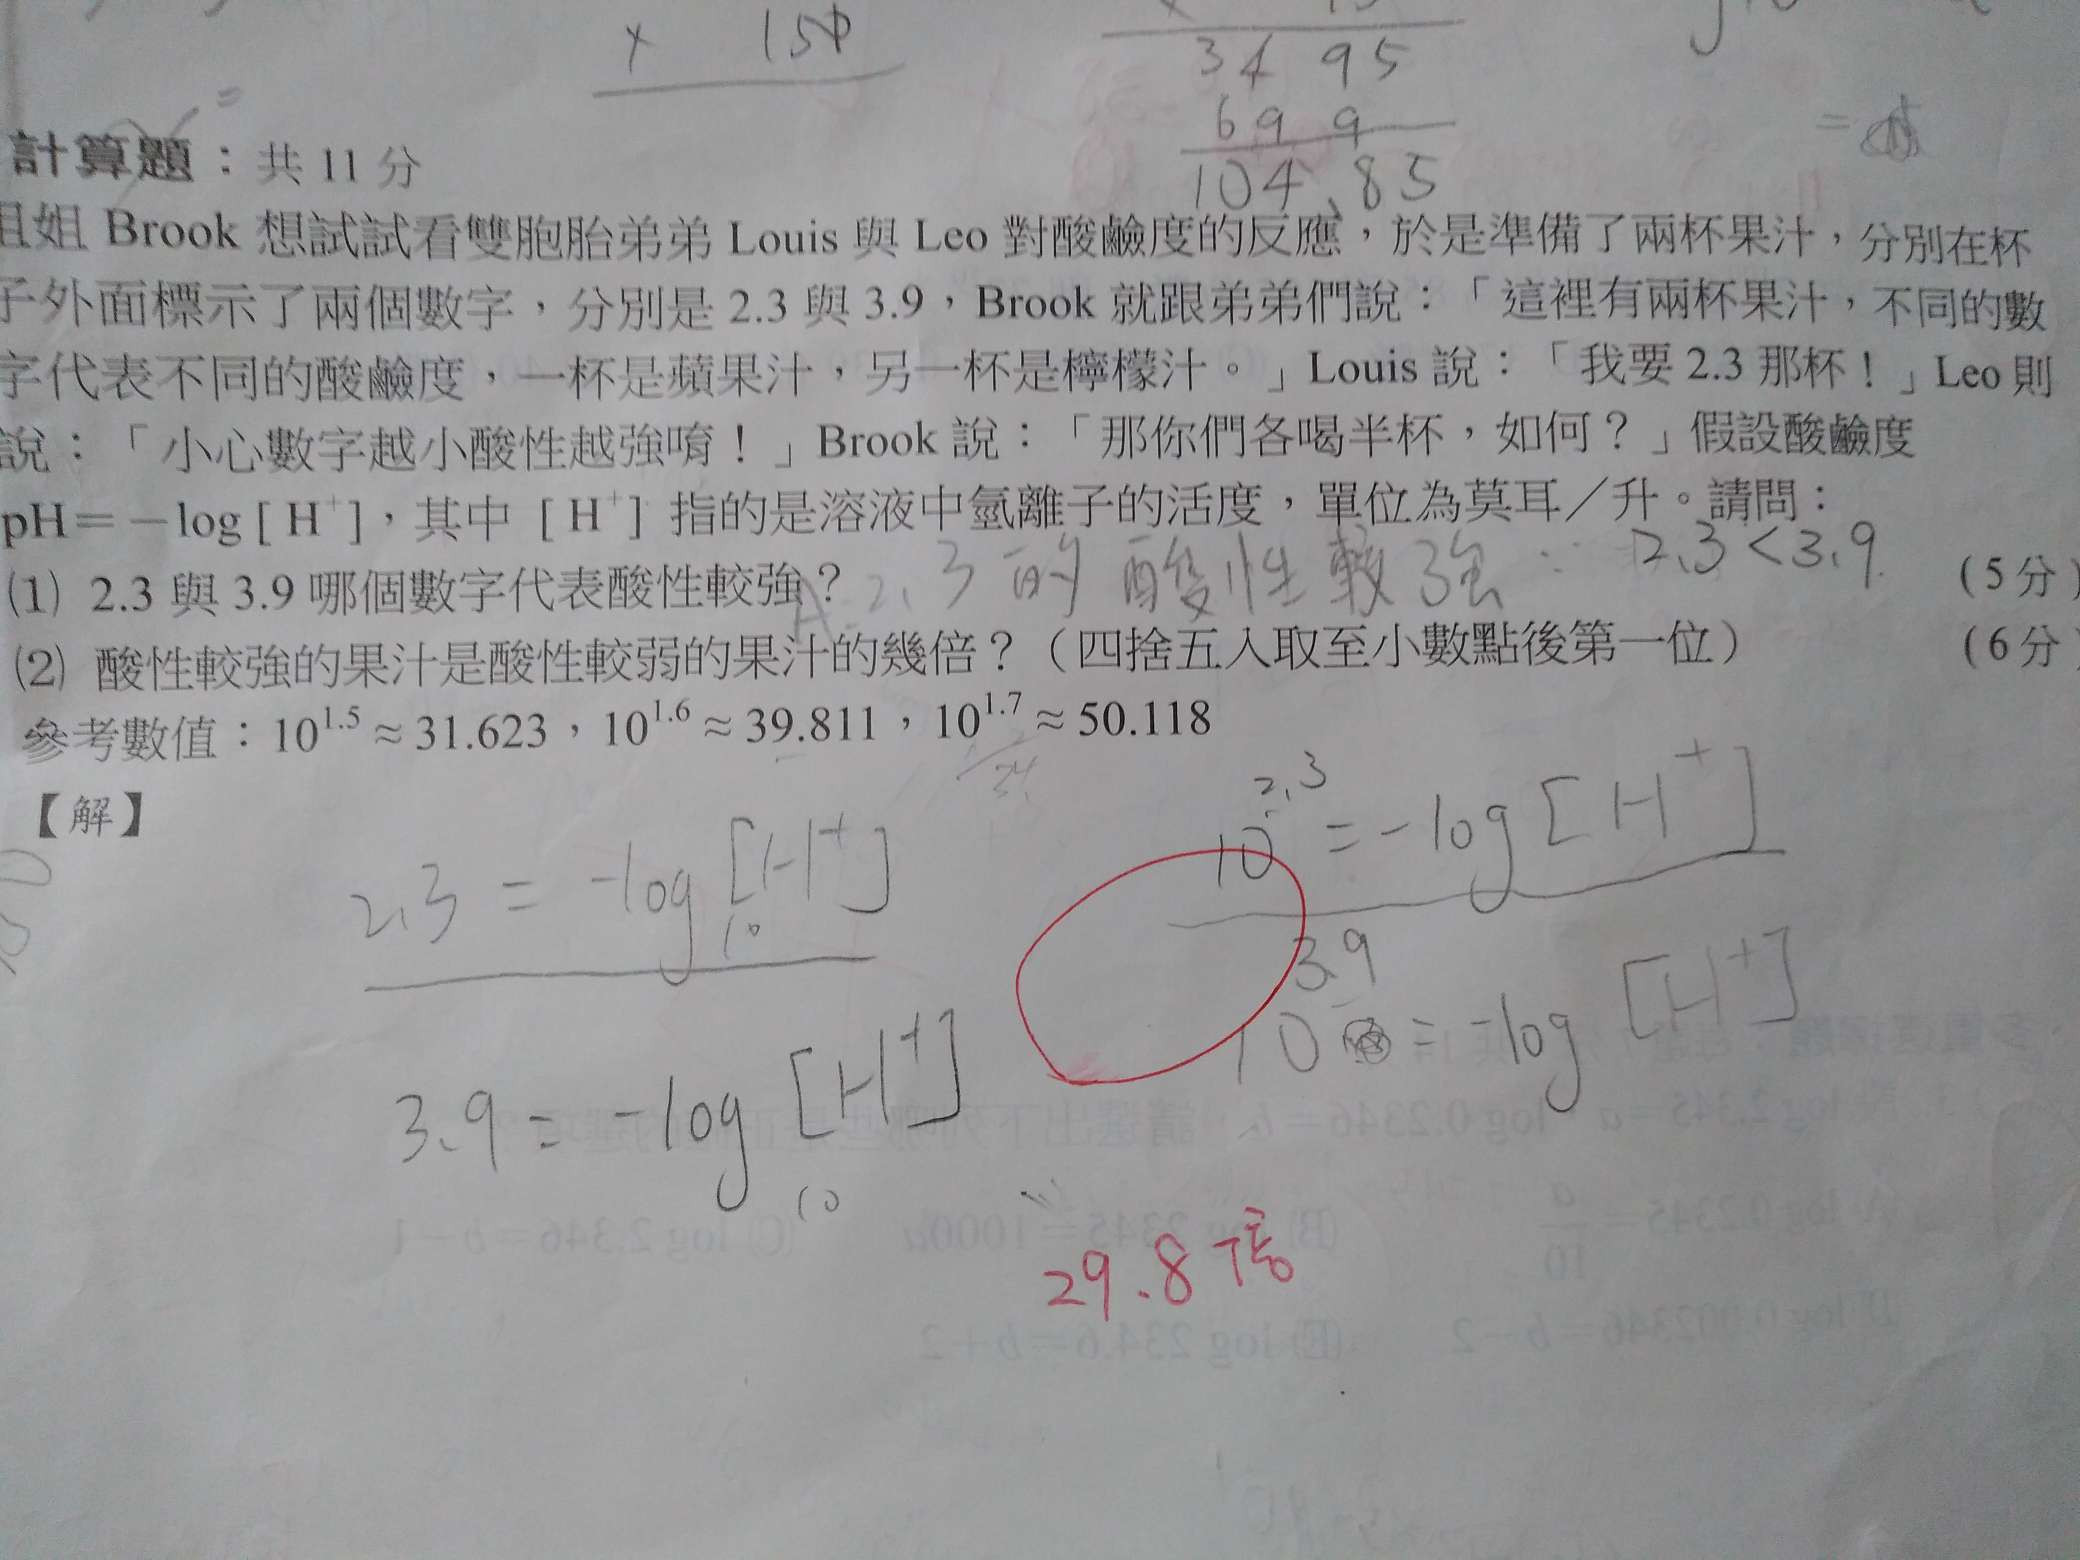 × 15
3495
699
104.85
計算題：共 11 分
姐姐 Brook 想試試看雙胞胎弟弟 Louis 與 Leo 對酸鹼度的反應，於是準備了兩杯果汁，分別在杯
子外面標示了兩個數字，分別是 2.3 與 3.9，Brook 就跟弟弟們說：「這裡有兩杯果汁，不同的數
字代表不同的酸鹼度，一杯是蘋果汁，另一杯是檸檬汁。」Louis 說：「我要 2.3 那杯！」Leo 則
說：「小心數字越小酸性越強唷！」Brook 說：「那你們各喝半杯，如何？」假設酸鹼度
pH＝－log [ H⁺ ]，其中 [ H⁺ ] 指的是溶液中氫離子的活度，單位為莫耳／升。請問：
(1) 2.3 與 3.9 哪個數字代表酸性較強？ A：2.3 的酸性較強 ∵ 2.3 < 3.9 (5 分)
(2) 酸性較強的果汁是酸性較弱的果汁的幾倍？（四捨五入取至小數點後第一位） (6 分)
參考數值：10^1.5 ≈ 31.623，10^1.6 ≈ 39.811，10^1.7 ≈ 50.118
【解】
2.3 = -log₁₀ [H⁺]
3.9 = -log₁₀ [H⁺]
10^2.3 = -log [H⁺]
10^3.9 = -log [H⁺]
29.8 倍